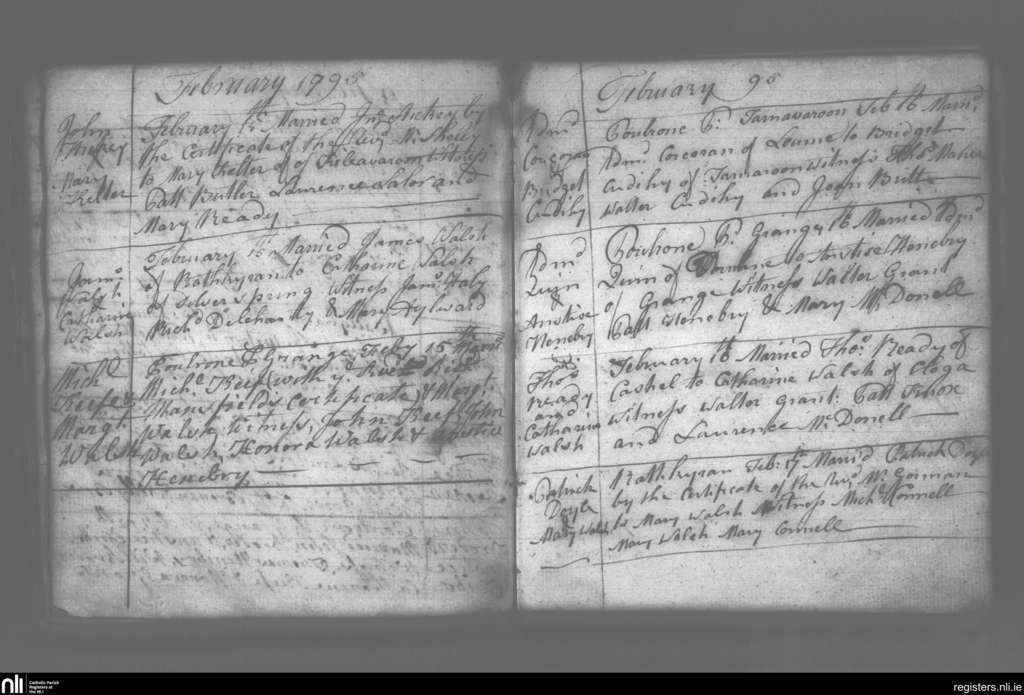 February 1795
John
Hickey
Mary
Kelter
February Married Jno. Hickey by
the Certificate of the Revd. Mr. Shelly
to Mary Kelter of Witness
Patt Butler Laurence Lalor and
Mary Ready
James
Walsh
Catharine
Walsh
February Married James Walsh
of Rathkyran to Catherine Walsh
of Silver spring witness James
Michd Delehanty & Mary Aylward
Michl
Reefe &
Margt.
Walsh
Poulrone Pd Grange Feby 15th
Michl. Reefe with ye. Revd
Mansfields Certificate & Margt.
Walsh Witness, John Reefe John
Walsh, Honora Walsh & Anstice
Henebry
February 95
Edmd
Corcoran
Bridget
Cudihy
Poulrone Pd. Jamavaroon Feb Marrd.
Edmd. Corcoran of to Bridget
Cudihy of Witness Thos. Maher
Walter Cudihy and Joan Butt
Edmd
Quin
&
Anstice
Henebry
Poulrone Pd. Grange Married Edmd
Quin of to Anstice Henebry
of Grange Witness Walter Grant
Patt Henebry & Mary McDonell
Thos
Ready
and
Catharine
Walsh
February Married Thos. Ready of
Cashel to Catharine Walsh of Cloga
Witness Walter Grant: Patt
and Laurence McDonell
Patrick
Doyle
&
Mary Walsh
Rathkyran Feb: Married Patrick Doyle
by the Certificate of the Revd. Mr. Gorman
to Mary Walsh Witness Michl Konnell
Mary Walsh Mary Connell
nli
Catholic Parish
Registers at
the NLI
registers.nli.ie